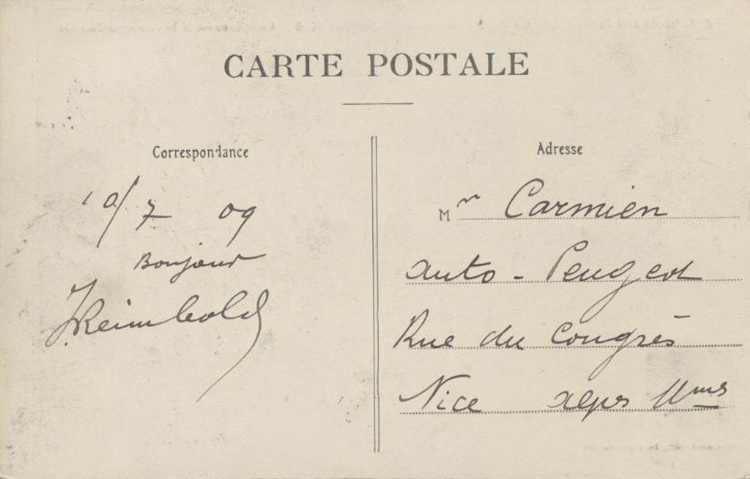 CARTE POSTALE
Correspondance
10/7 09
Bonjour
J. Reimbold
Adresse
Mr Carmien
auto-Peugeot
Rue du Congrès
Nice alpes Mmes